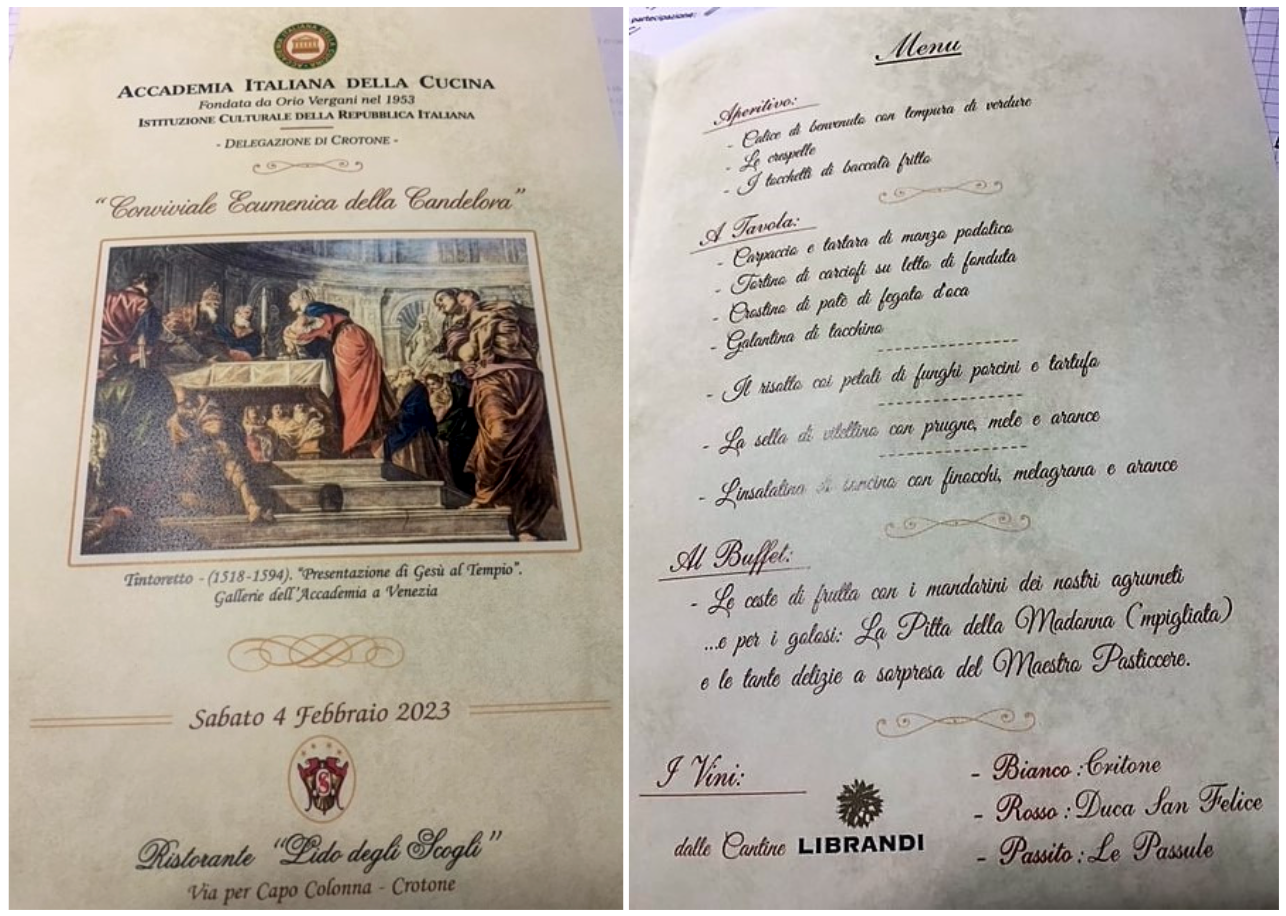 ACCADEMIA ITALIANA DELLA CUCINA
Fondata da Orio Vergani nel 1953
ISTITUZIONE CULTURALE DELLA REPUBBLICA ITALIANA
- DELEGAZIONE DI CROTONE -
“Conviviale Ecumenica della Candelora”
Tintoretto - (1518-1594). “Presentazione di Gesù al Tempio”.
Gallerie dell'Accademia a Venezia
Sabato 4 Febbraio 2023
Ristorante “Lido degli Scogli”
Via per Capo Colonna - Crotone
partecipazione:
Menu
Aperitivo:
- Calice di benvenuto con tempura di verdure
- Le crespelle
- I tocchetti di baccalà fritto
A Tavola:
- Carpaccio e tartara di manzo podolico
- Tortino di carciofi su letto di fonduta
- Crostino di patè di fegato d'oca
- Galantina di tacchino
- Il risotto coi petali di funghi porcini e tartufo
- La sella di vitellino con prugne, mele e arance
- L'insalatina di con finocchi, melagrana e arance
Al Buffet:
- Le ceste di frutta con i mandarini dei nostri agrumeti
...e per i golosi: La Pitta della Madonna ('mpigliata)
e le tante delizie a sorpresa del Maestro Pasticcere.
I Vini:
dalle Cantine LIBRANDI
- Bianco : Critone
- Rosso : Duca San Felice
- Passito : Le Passule